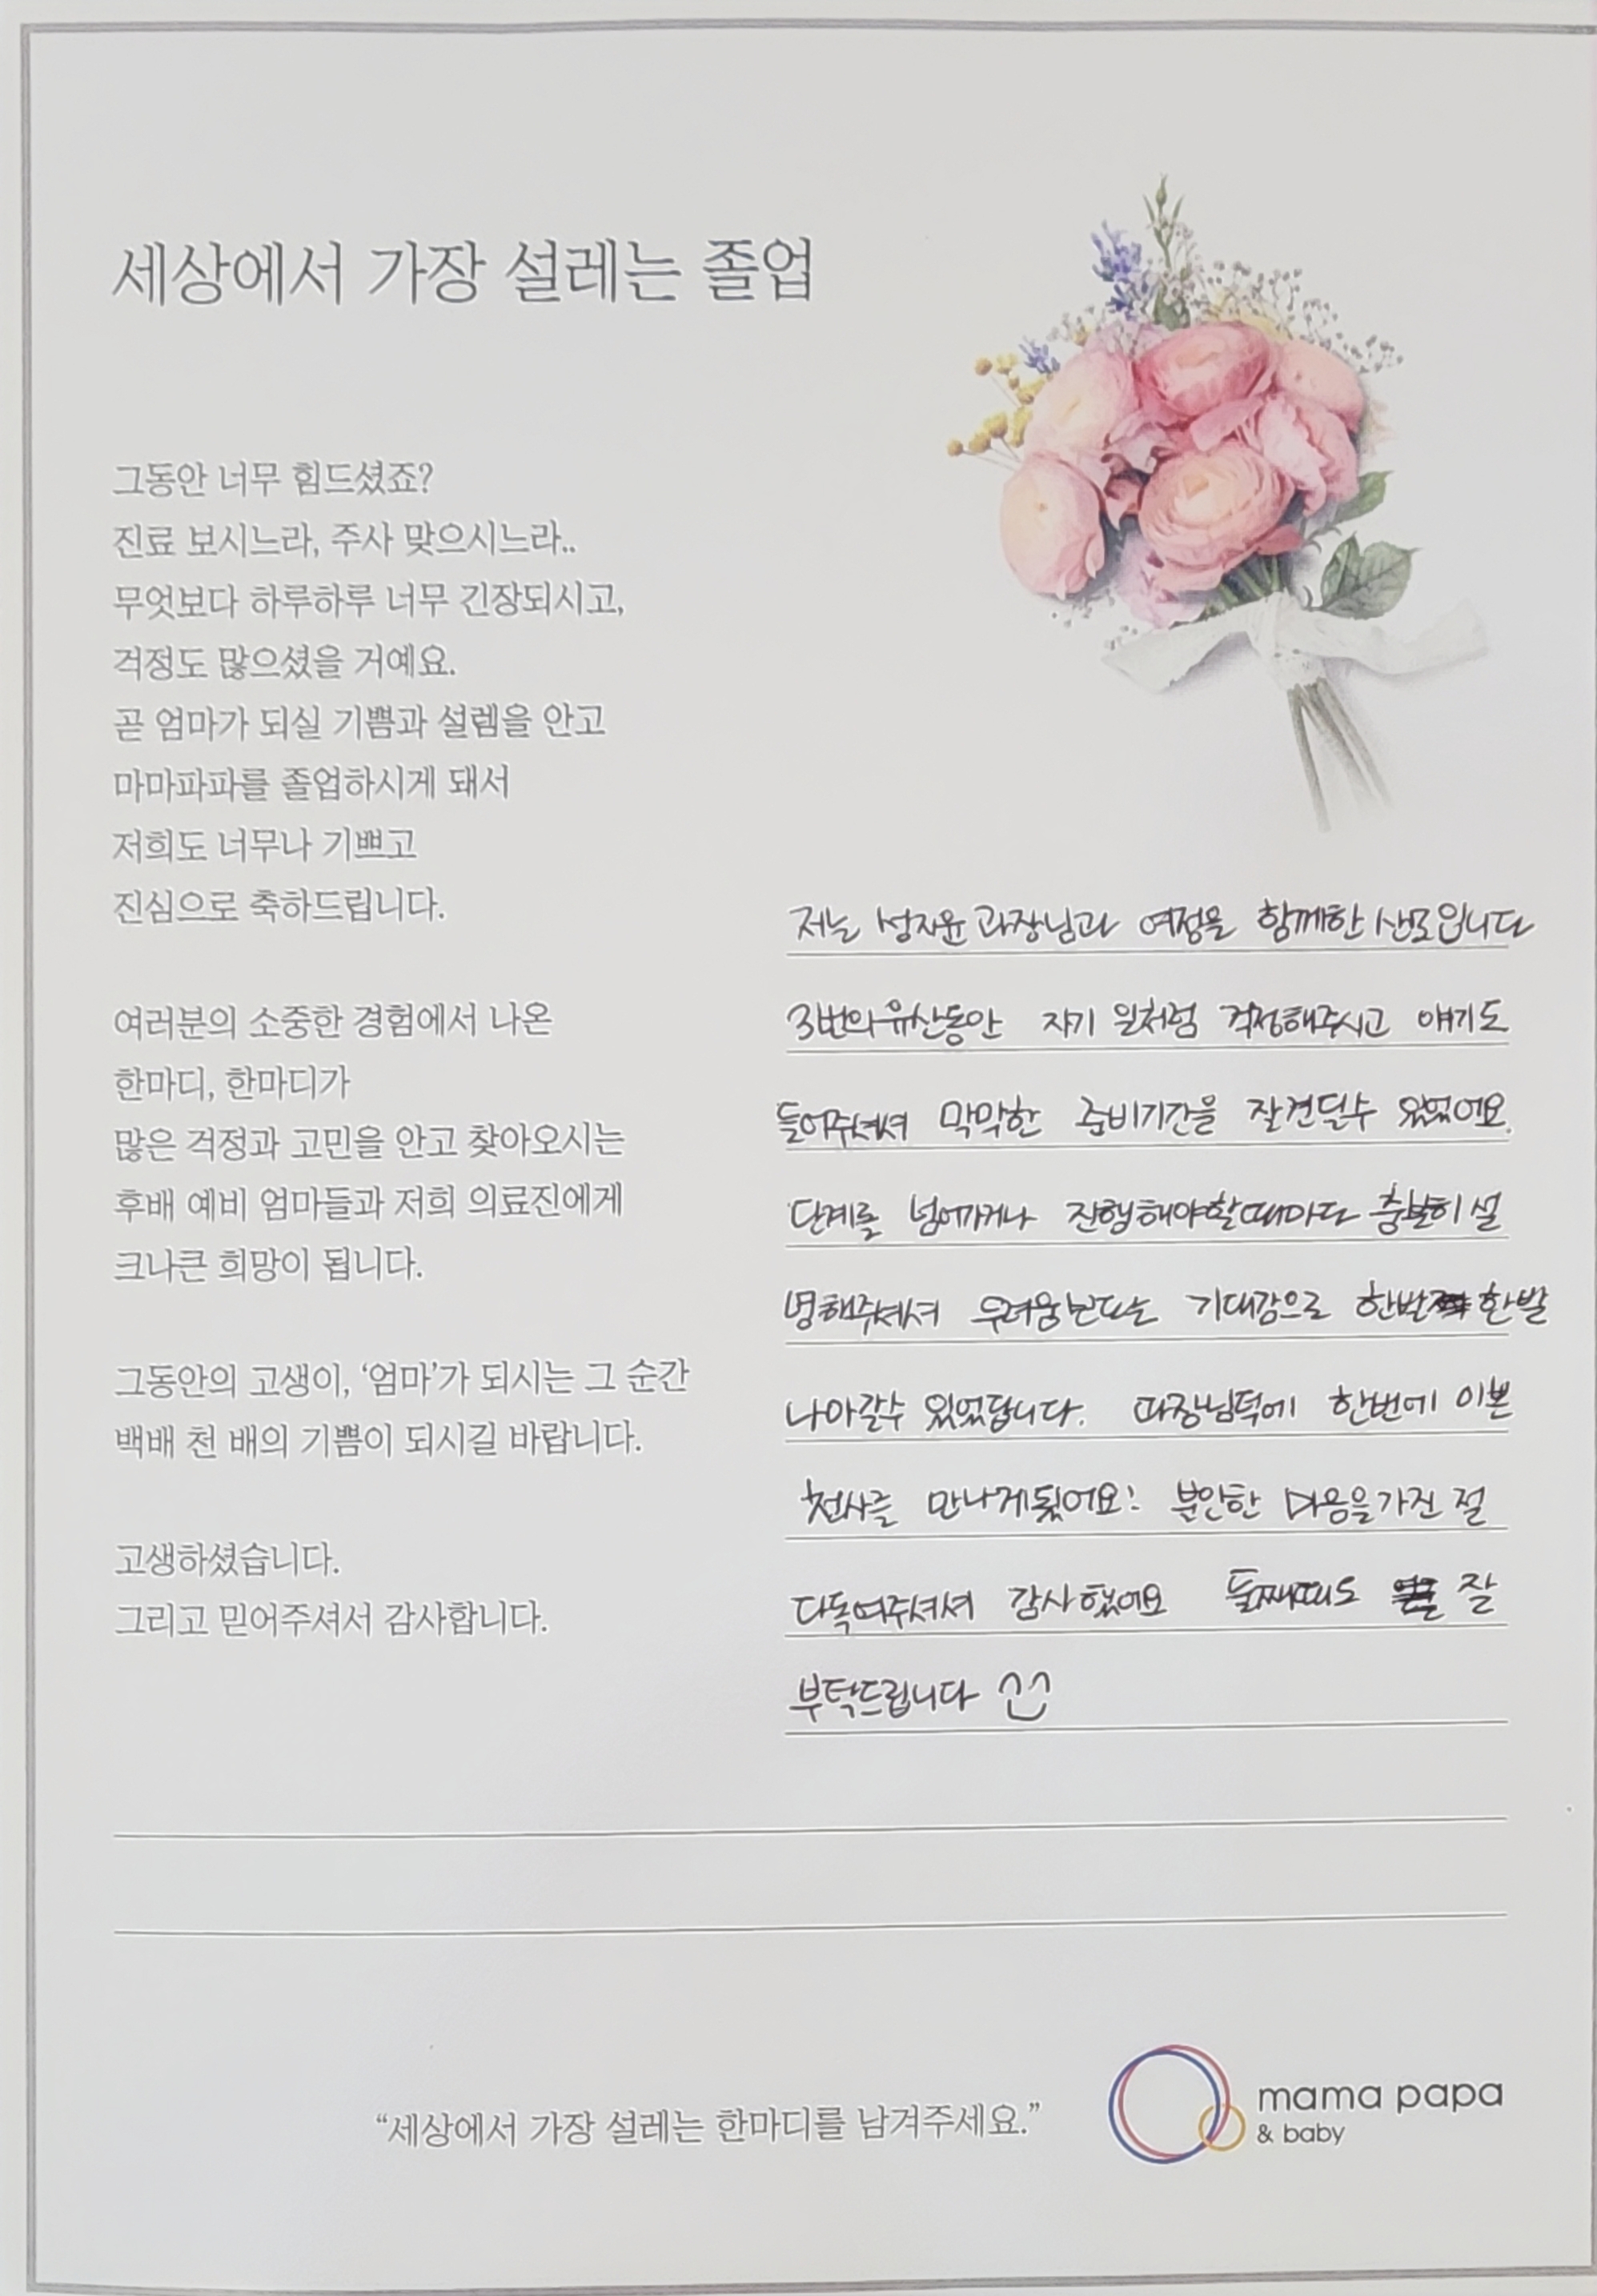 세상에서 가장 설레는 졸업
그동안 너무 힘드셨죠?
진료 보시느라, 주사 맞으시느라..
무엇보다 하루하루 너무 긴장되시고,
걱정도 많으셨을 거예요.
곧 엄마가 되실 기쁨과 설렘을 안고
마마파파를 졸업하시게 돼서
저희도 너무나 기쁘고
진심으로 축하드립니다.
여러분의 소중한 경험에서 나온
한마디, 한마디가
많은 걱정과 고민을 안고 찾아오시는
후배 예비 엄마들과 저희 의료진에게
크나큰 희망이 됩니다.
그동안의 고생이, ‘엄마’가 되시는 그 순간
백배 천 배의 기쁨이 되시길 바랍니다.
고생하셨습니다.
그리고 믿어주셔서 감사합니다.
저는 성지윤 과장님과 여정을 함께한 산모입니다
3번의 유산동안 자기 일처럼 걱정해주시고 얘기도
들어주셔서 막막한 준비기간을 잘견딜수 있었어요.
단계를 넘어가거나 진행해야할때마다 충분히 설
명해주셔서 두려움보다는 기대감으로 한발 한발
나아갈수 있었답니다. 과장님덕에 한번에 이쁜
천사를 만나게됬어요! 불안한 마음을가진 절
다독여주셔서 감사했어요 둘째때도 잘
부탁드립니다
“세상에서 가장 설레는 한마디를 남겨주세요.”
mama papa
& baby